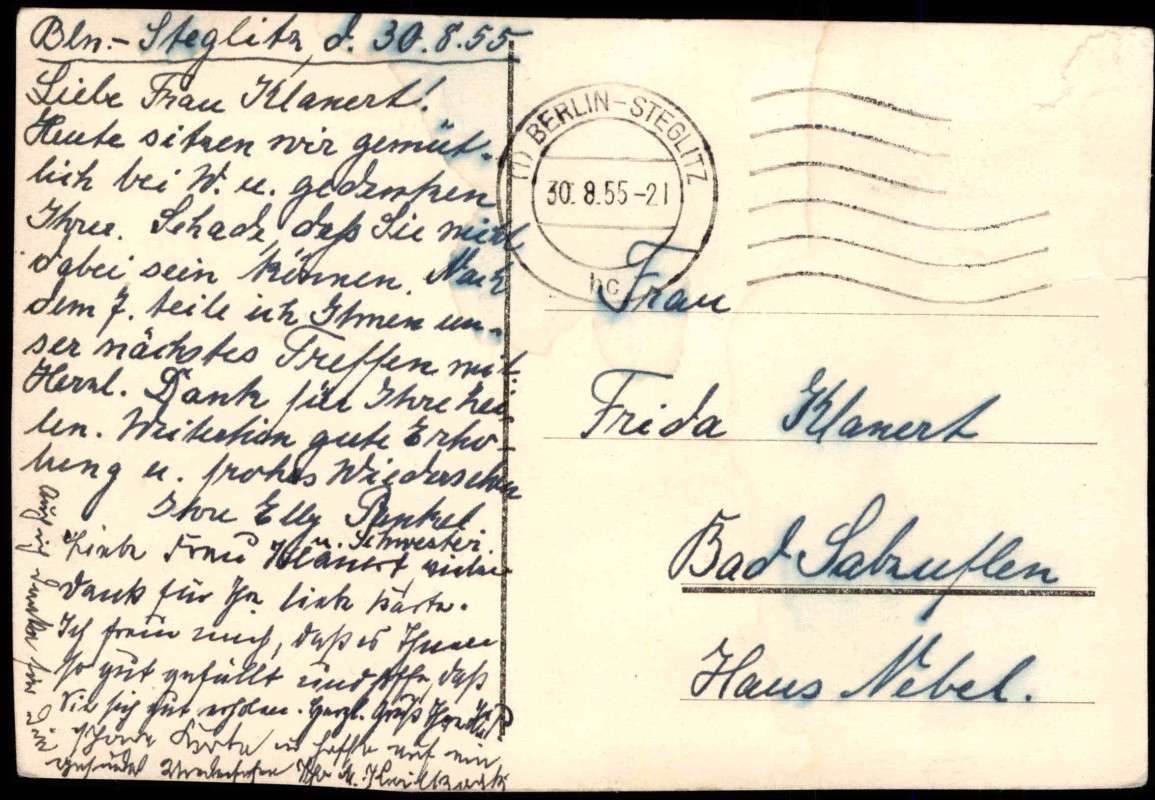 Bln.-Steglitz, d. 30.8.55
Liebe Frau Klanert!
Heute sitzen wir gemüt-
lich bei W. u. gedenken
Ihrer. Schade, daß Sie nicht
dabei sein können. Nach
dem 7. teile ich Ihnen un-
ser nächstes Treffen mit.
Herzl. Dank für Ihre Zei-
len. Weiterhin gute Erho-
lung u. frohes Wiedersehen
Ihre Elly
u. Schwester.
Liebe Frau Klanert, vielen
Dank für Ihre liebe Karte.
Ich freue mich, daß es Ihnen
so gut gefällt und hoffe, daß
Sie sich gut erholen. Herzl. Gruß Ihre
Auch ich danke für die
schöne Karte u. hoffe auf ein
gesundes Wiedersehen Ihre M.
(1) BERLIN-STEGLITZ
30.8.55-21
hc
Frau
Frida Klanert
Bad Salzuflen
Haus Nebel.